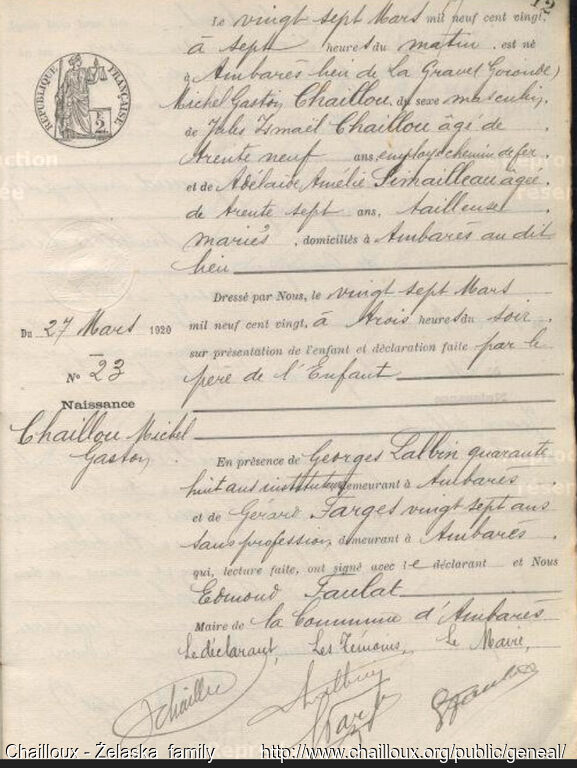 12
Le vingt sept Mars mil neuf cent vingt,
à sept heures du matin, est né
à Ambarès lieu de La Grave (Gironde)
Michel Gaston Chaillou, du sexe masculin,
de Jules Ismaël Chaillou âgé de
trente neuf ans, employé chemin de fer
et de Adélaïde Amélie âgée
de trente sept ans, tailleuse
mariés, domiciliés à Ambarès au dit
lieu
Dressé par Nous, le vingt sept Mars
mil neuf cent vingt, à trois heures du soir
sur présentation de l'enfant et déclaration faite par le
père de l'Enfant
RÉPUBLIQUE FRANÇAISE
2
Du 27 Mars 1920
N° 23
Naissance
Chaillou Michel
Gaston
En présence de Georges Lalbin quarante
huit ans instituteur demeurant à Ambarès
et de Gérard Farges vingt sept ans
sans profession, demeurant à Ambarès
qui, lecture faite, ont signé avec le déclarant et Nous
Edmond Faulat
Maire de la Commune d'Ambarès
Le déclarant, Les Témoins, Le Maire,
JChaillou
Chailloux - Żelaska family http://www.chailloux.org/public/geneal/